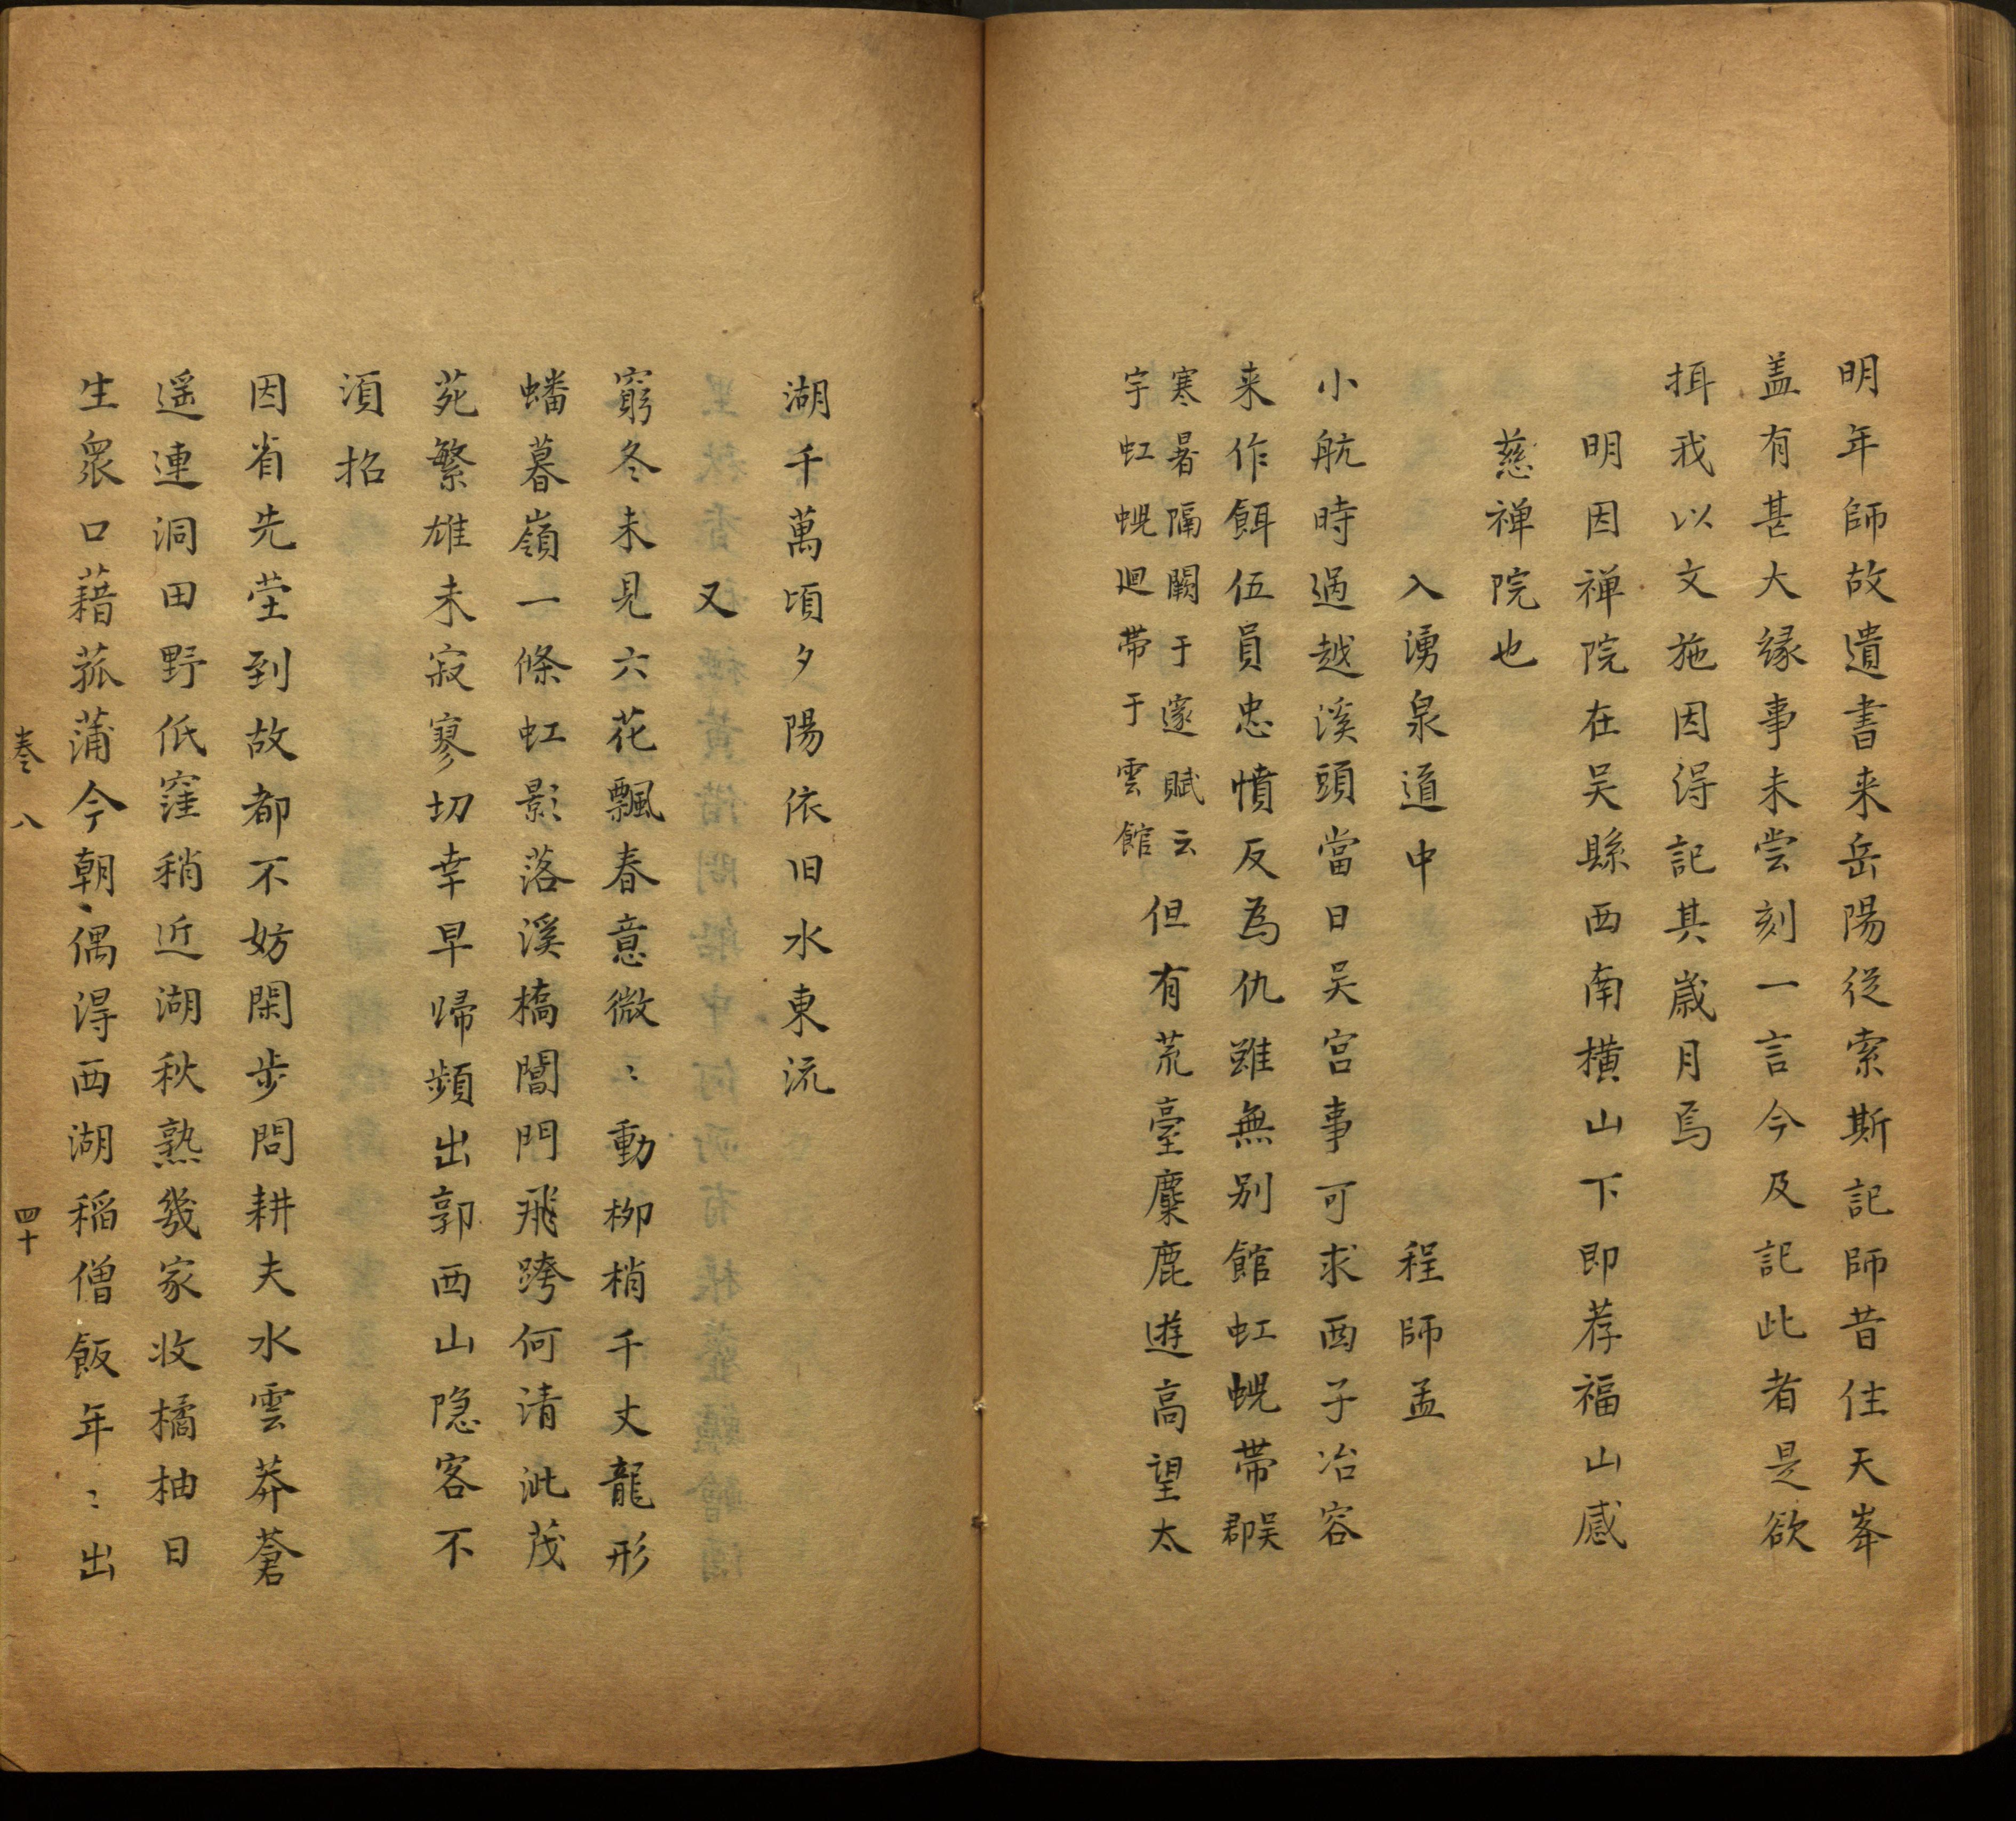 明年師故遺書来岳陽従索斯記師昔住天峯
盖有甚大縁事未尝刻一言今及記此者是欲
揖我以文施因淂記其嵗月焉
明因禅院在吴縣西南横山下即荐福山感
慈禅院也
入湧泉道中　程師孟
小航時過越溪頭當日吴宫事可求西子冶容
来作餌伍員忠憤反為仇雖無别館虹蜺帶吴郡
寒暑隔闕于邃賦云
宇虹蜺迴帶于雲館
但有荒臺麋鹿遊高望太
湖千萬頃夕陽依旧水東流
又
窮冬未見六花飄春意微〻動柳梢千丈龍形
蟠暮嶺一條虹影落溪橋閶門飛跨何清泚茂
苑繁雄未寂寥切幸早歸頻出郭西山隐客不
湏招
因省先茔到故都不妨閑步問耕夫水雲莽蒼
遥連洞田野低窪稍近湖秋熟幾家收橘柚日
生衆口藉菰蒲今朝偶淂西湖稲僧飯年〻出
巻八　四十